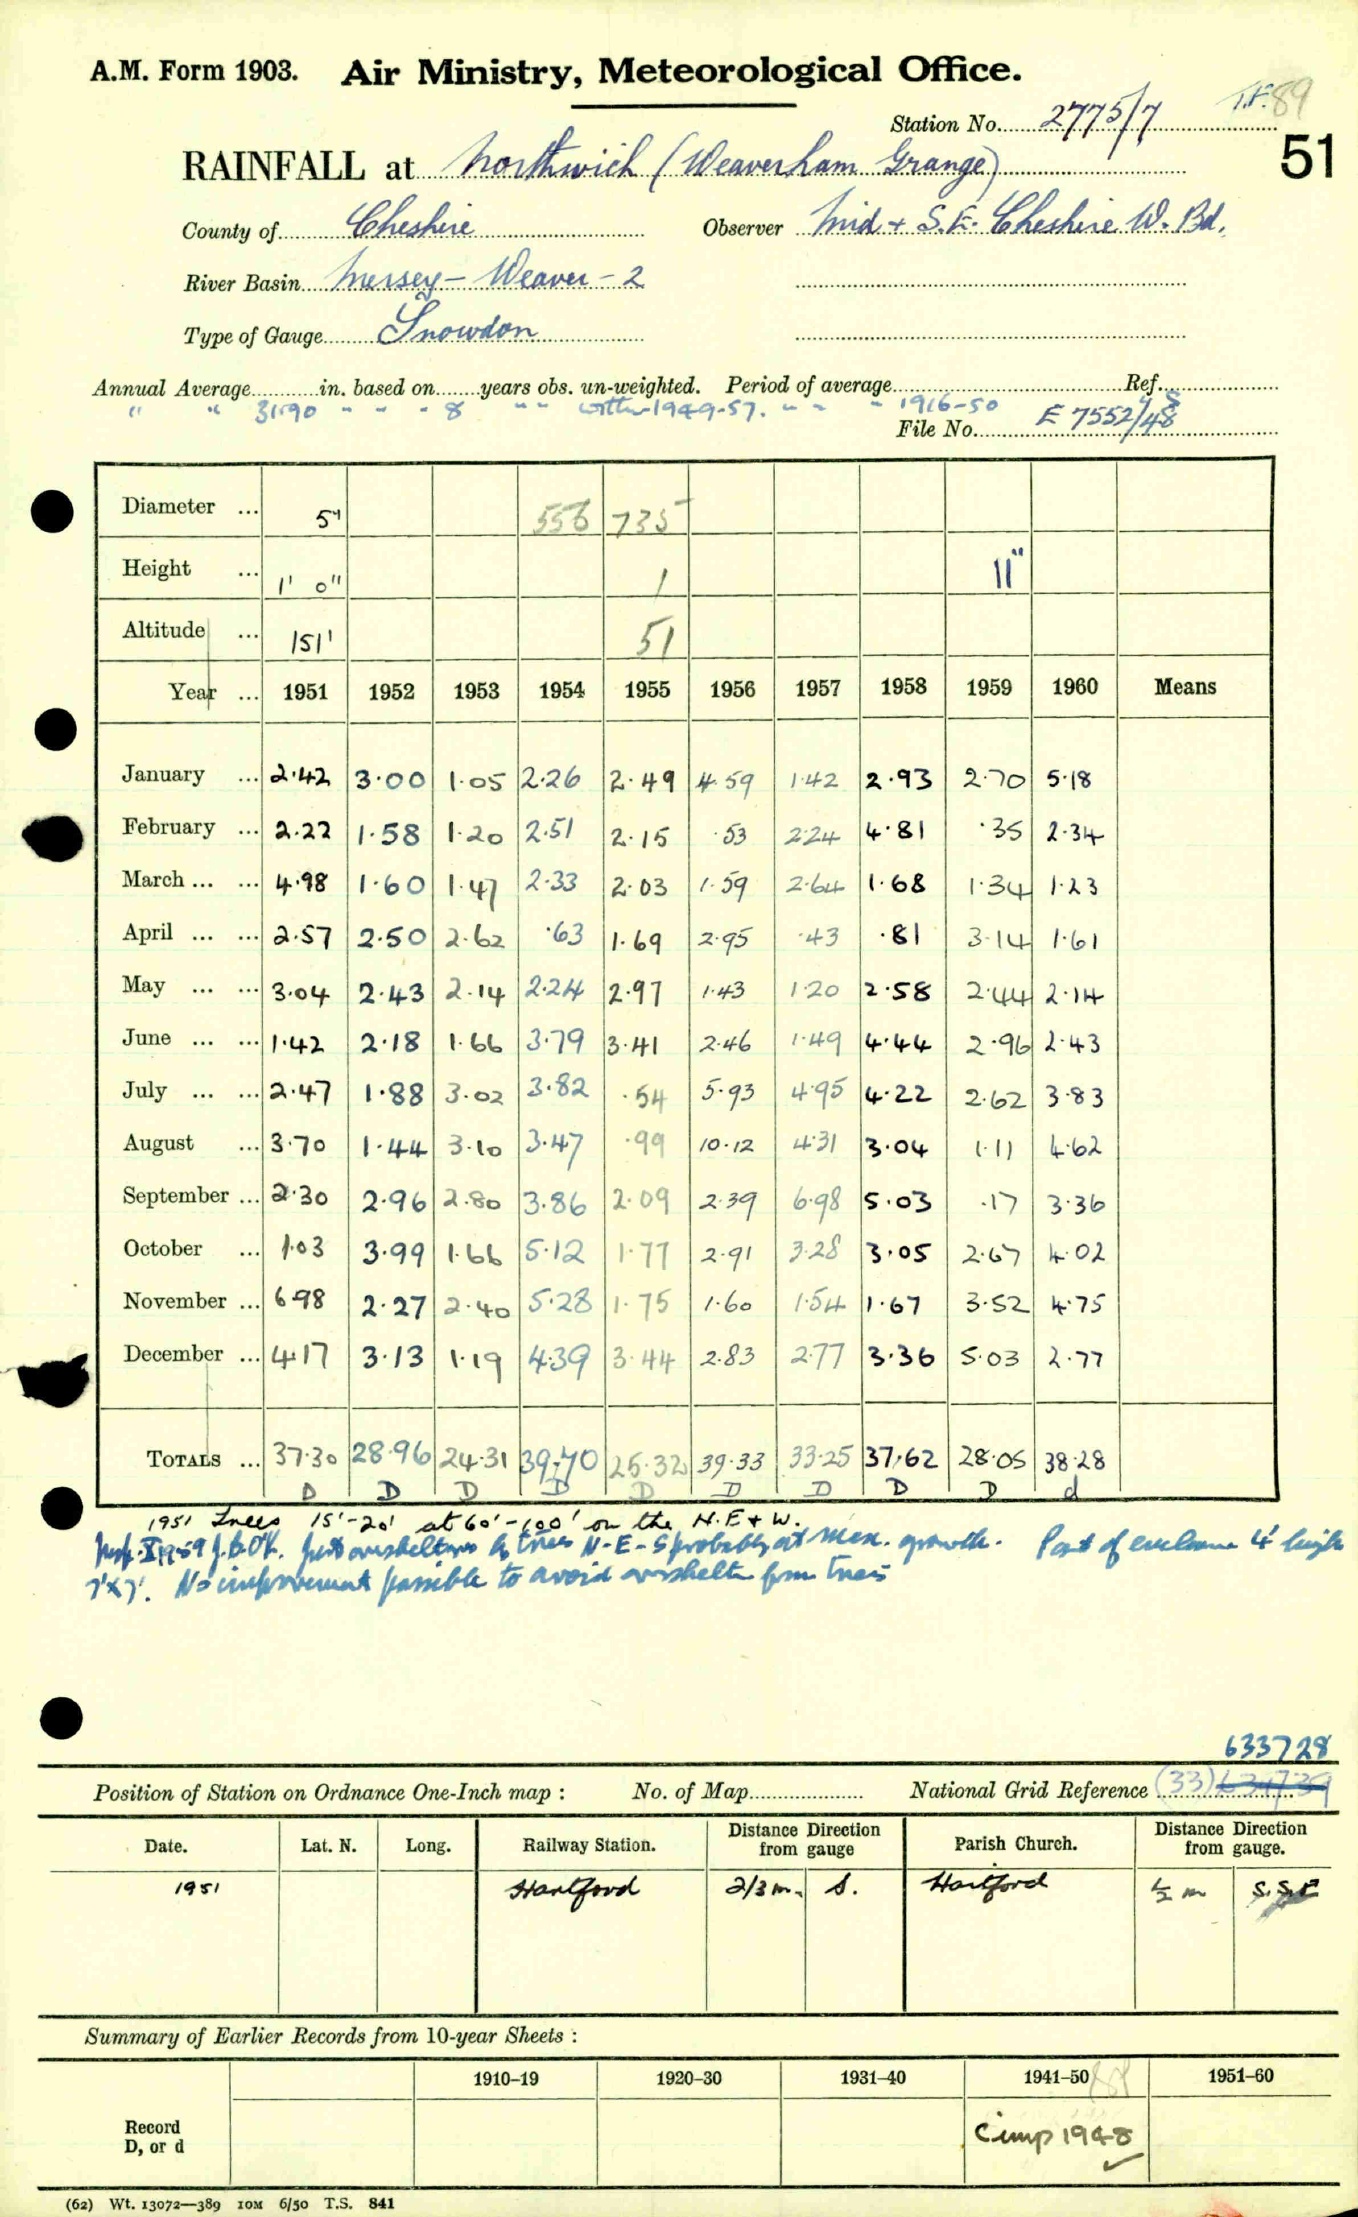 A.M. Form 1903. Air Ministry, Meteorological Office.
T.F. 89
Station No. 2775/7
51
RAINFALL at Northwich (Weaverham Grange)
County of Cheshire Observer Mid + S.E. Cheshire W. Bd.
River Basin Mersey - Weaver - 2
Type of Gauge Snowdon
Annual Average in. based on years obs. un-weighted. Period of average Ref.
" " 31.90 " " " 8 " " 1949-57. " " " 1916-50
File No. E 7552/48
Diameter ... 5" 556 735
Height ... 1' 0" 1 11"
Altitude ... 151' 51
Year ... 1951 1952 1953 1954 1955 1956 1957 1958 1959 1960 Means
January ... 2.42 3.00 1.05 2.26 2.49 4.59 1.42 2.93 2.70 5.18
February ... 2.22 1.58 1.20 2.51 2.15 .53 2.24 4.81 .35 2.34
March ... ... 4.98 1.60 1.47 2.33 2.03 1.59 2.64 1.68 1.34 1.23
April ... ... 2.57 2.50 2.62 .63 1.69 2.95 .43 .81 3.14 1.61
May ... ... 3.04 2.43 2.14 2.24 2.97 1.43 1.20 2.58 2.44 2.14
June ... ... 1.42 2.18 1.66 3.79 3.41 2.46 1.49 4.44 2.96 2.43
July ... ... 2.47 1.88 3.02 3.82 .54 5.93 4.95 4.22 2.62 3.83
August ... 3.70 1.44 3.10 3.47 .99 10.12 4.31 3.04 1.11 4.62
September ... 2.30 2.96 2.80 3.86 2.09 2.39 6.98 5.03 .17 3.36
October ... 1.03 3.99 1.66 5.12 1.77 2.91 3.28 3.05 2.67 4.02
November ... 6.98 2.27 2.40 5.28 1.75 1.60 1.54 1.67 3.52 4.75
December ... 4.17 3.13 1.19 4.39 3.44 2.83 2.77 3.36 5.03 2.77
TOTALS ... 37.30 28.96 24.31 39.70 25.32 39.33 33.25 37.62 28.05 38.28
D D D D D D D D D d
1951 Trees 15'-20' at 60'-100' on the N.E & W.
Insp. X 1959 J.G.O'K. Just oversheltered by trees N-E-S probably at max. growth. Part of enclosure 4' high
7'x7'. No improvement possible to avoid overshelter from trees
633728
Position of Station on Ordnance One-Inch map : No. of Map National Grid Reference (33) 634739
Date. Lat. N. Long. Railway Station. Distance Direction from gauge Parish Church. Distance Direction from gauge.
1951 Hartford 2/3 m. S. Hartford ½ m S.S.E
Summary of Earlier Records from 10-year Sheets :
1910–19 1920–30 1931–40 1941–50 1951–60
Record
D, or d
Comp 1948
(62) Wt. 13072—389 10M 6/50 T.S. 841